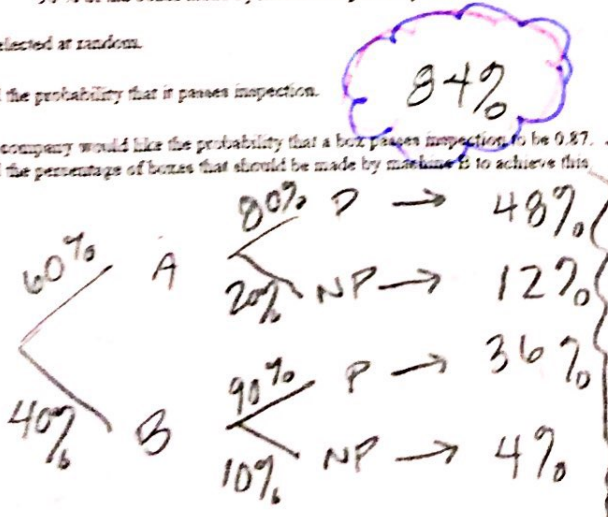 elected at random.
84%
the probability that it passes inspection.
company would like the probability that a box passes inspection to be 0.87.
the percentage of boxes that should be made by machine B to achieve this
80% P → 48%
60% A
20% NP → 12%
90% P → 36%
40% B
10% NP → 4%